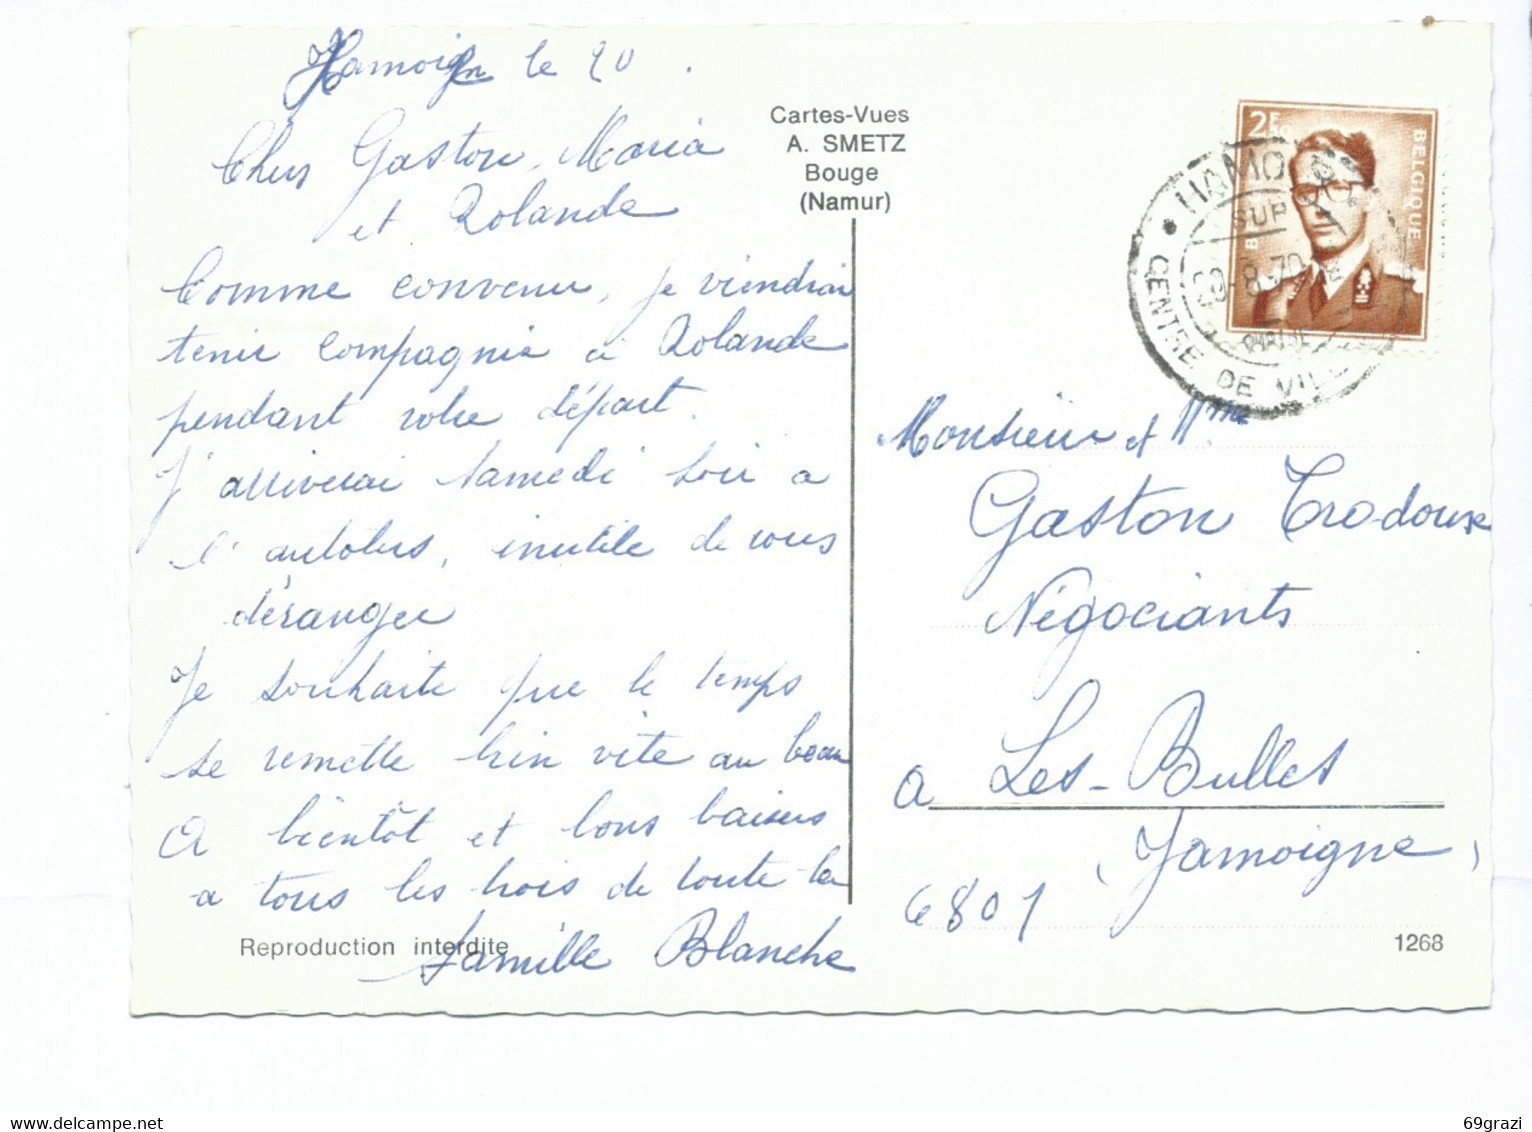 Hamoign le 20.
Chers Gaston, Maria
et Rolande
Comme convenu, je viendrai
tenir compagnie à Rolande
pendant votre départ.
J'arriverai Samedi soir a
l'autobus, inutile de vous
déranger
Je souhaite que le temps
se remette bien vite au beau
A bientôt et bons baisers
a tous les trois de toute la
famille Blanche
Reproduction interdite
Cartes-Vues
A. SMETZ
Bouge
(Namur)
2F50
BELGIQUE
SUR
CENTRE DE VILL
Monsieur et Mme
Gaston Trodoux
Négociants
a Les-Bulles
(Jamoigne)
6801
1268
69grazi